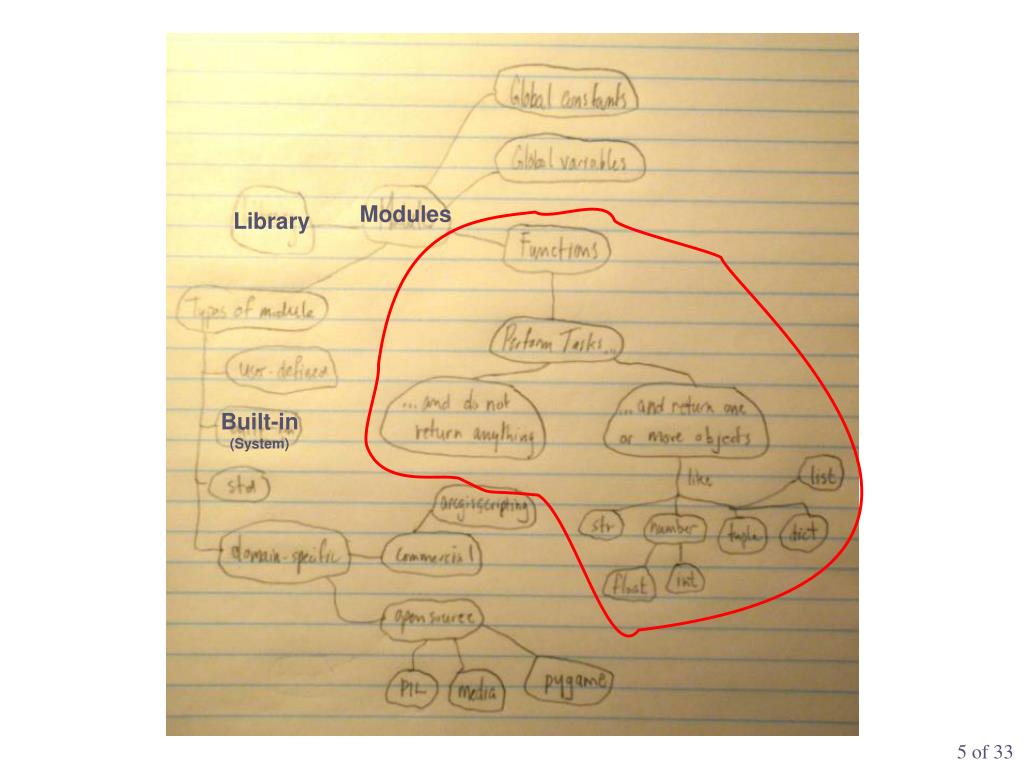 Global constants
Global variables
Library
Modules
Functions
Types of module
Perform Tasks...
user-defined
...and do not
return anything
...and return one
or more objects
Built-in
(System)
like
list
std
arcgisscripting
str
number
tuple
dict
domain-specific
commercial
float
int
open source
PIL
media
pygame
5 of 33